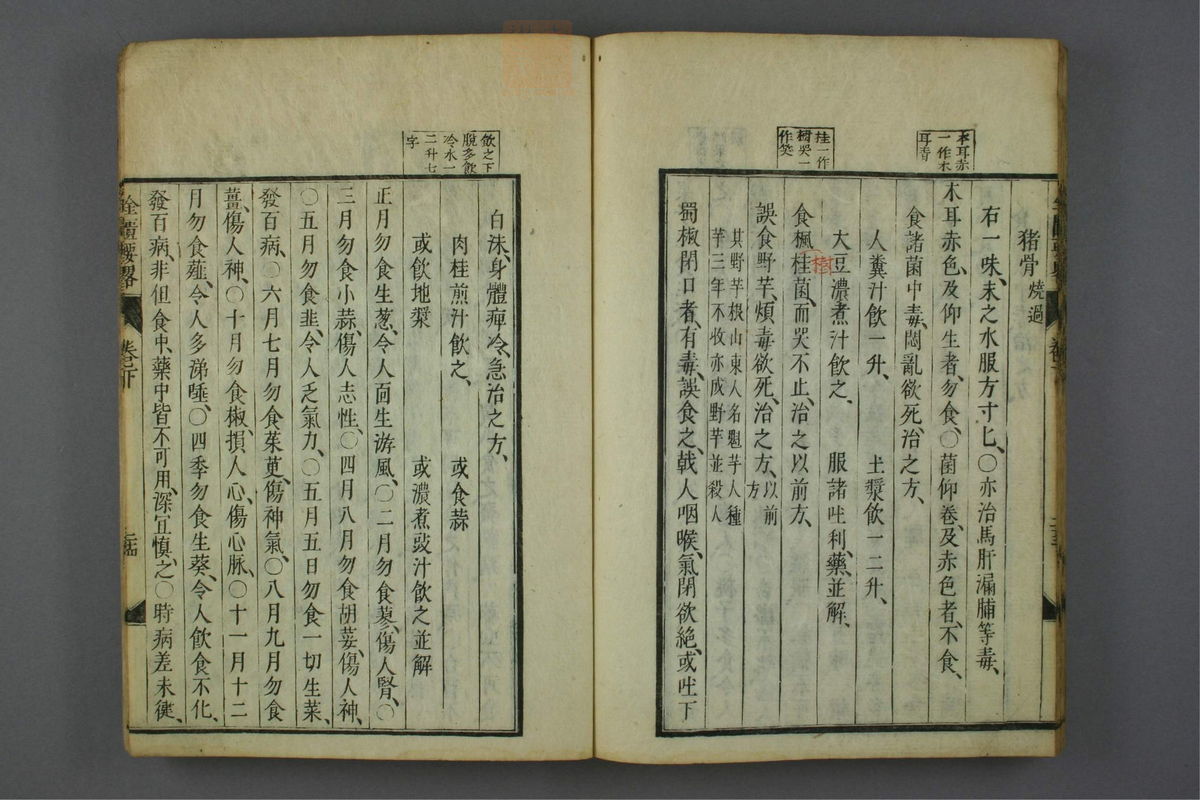 木耳赤
一作木
耳青
猪骨燒過
右一味、末之水服方寸匕、〇亦治馬肝漏脯等毒、
木耳赤色、及仰生者、勿食、〇菌仰卷、及赤色者、不食、
食諸菌中毒、悶亂欲死、治之方、
人糞汁飲一升、　土漿飲一二升、
大豆濃煮汁飲之、　服諸吐利藥、並解、
桂一作
樹哭一
作笑
樹
食楓桂菌、而哭不止、治之以前方、
誤食野芋、煩毒欲死、治之方、以前方
其野芋根山東人名魁芋人種
芋三年不收亦成野芋並殺人
蜀椒閉口者、有毒、誤食之、戟人咽喉、氣閉欲絶、或吐下
飲之下
脫多飲
冷水一
二升七
字
白沫、身體痺冷、急治之方、
肉桂煎汁飲之、　或食蒜
或飲地漿　或濃煮豉汁飲之並解
正月勿食生葱、令人面生游風、〇二月勿食蓼、傷人腎、〇
三月勿食小蒜、傷人志性、〇四月八月勿食胡荽、傷人神、
〇五月勿食韭、令人乏氣力、〇五月五日勿食一切生菜、
發百病、〇六月七月勿食茱萸、傷神氣、〇八月九月勿食
薑、傷人神、〇十月勿食椒、損人心、傷心脉、〇十一月十二
月勿食薤、令人多涕唾、〇四季勿食生葵、令人飲食不化、
發百病、非但食中、藥中皆不可用、深宜慎之、〇時病差未健、
金匱要畧　卷之下　二十四